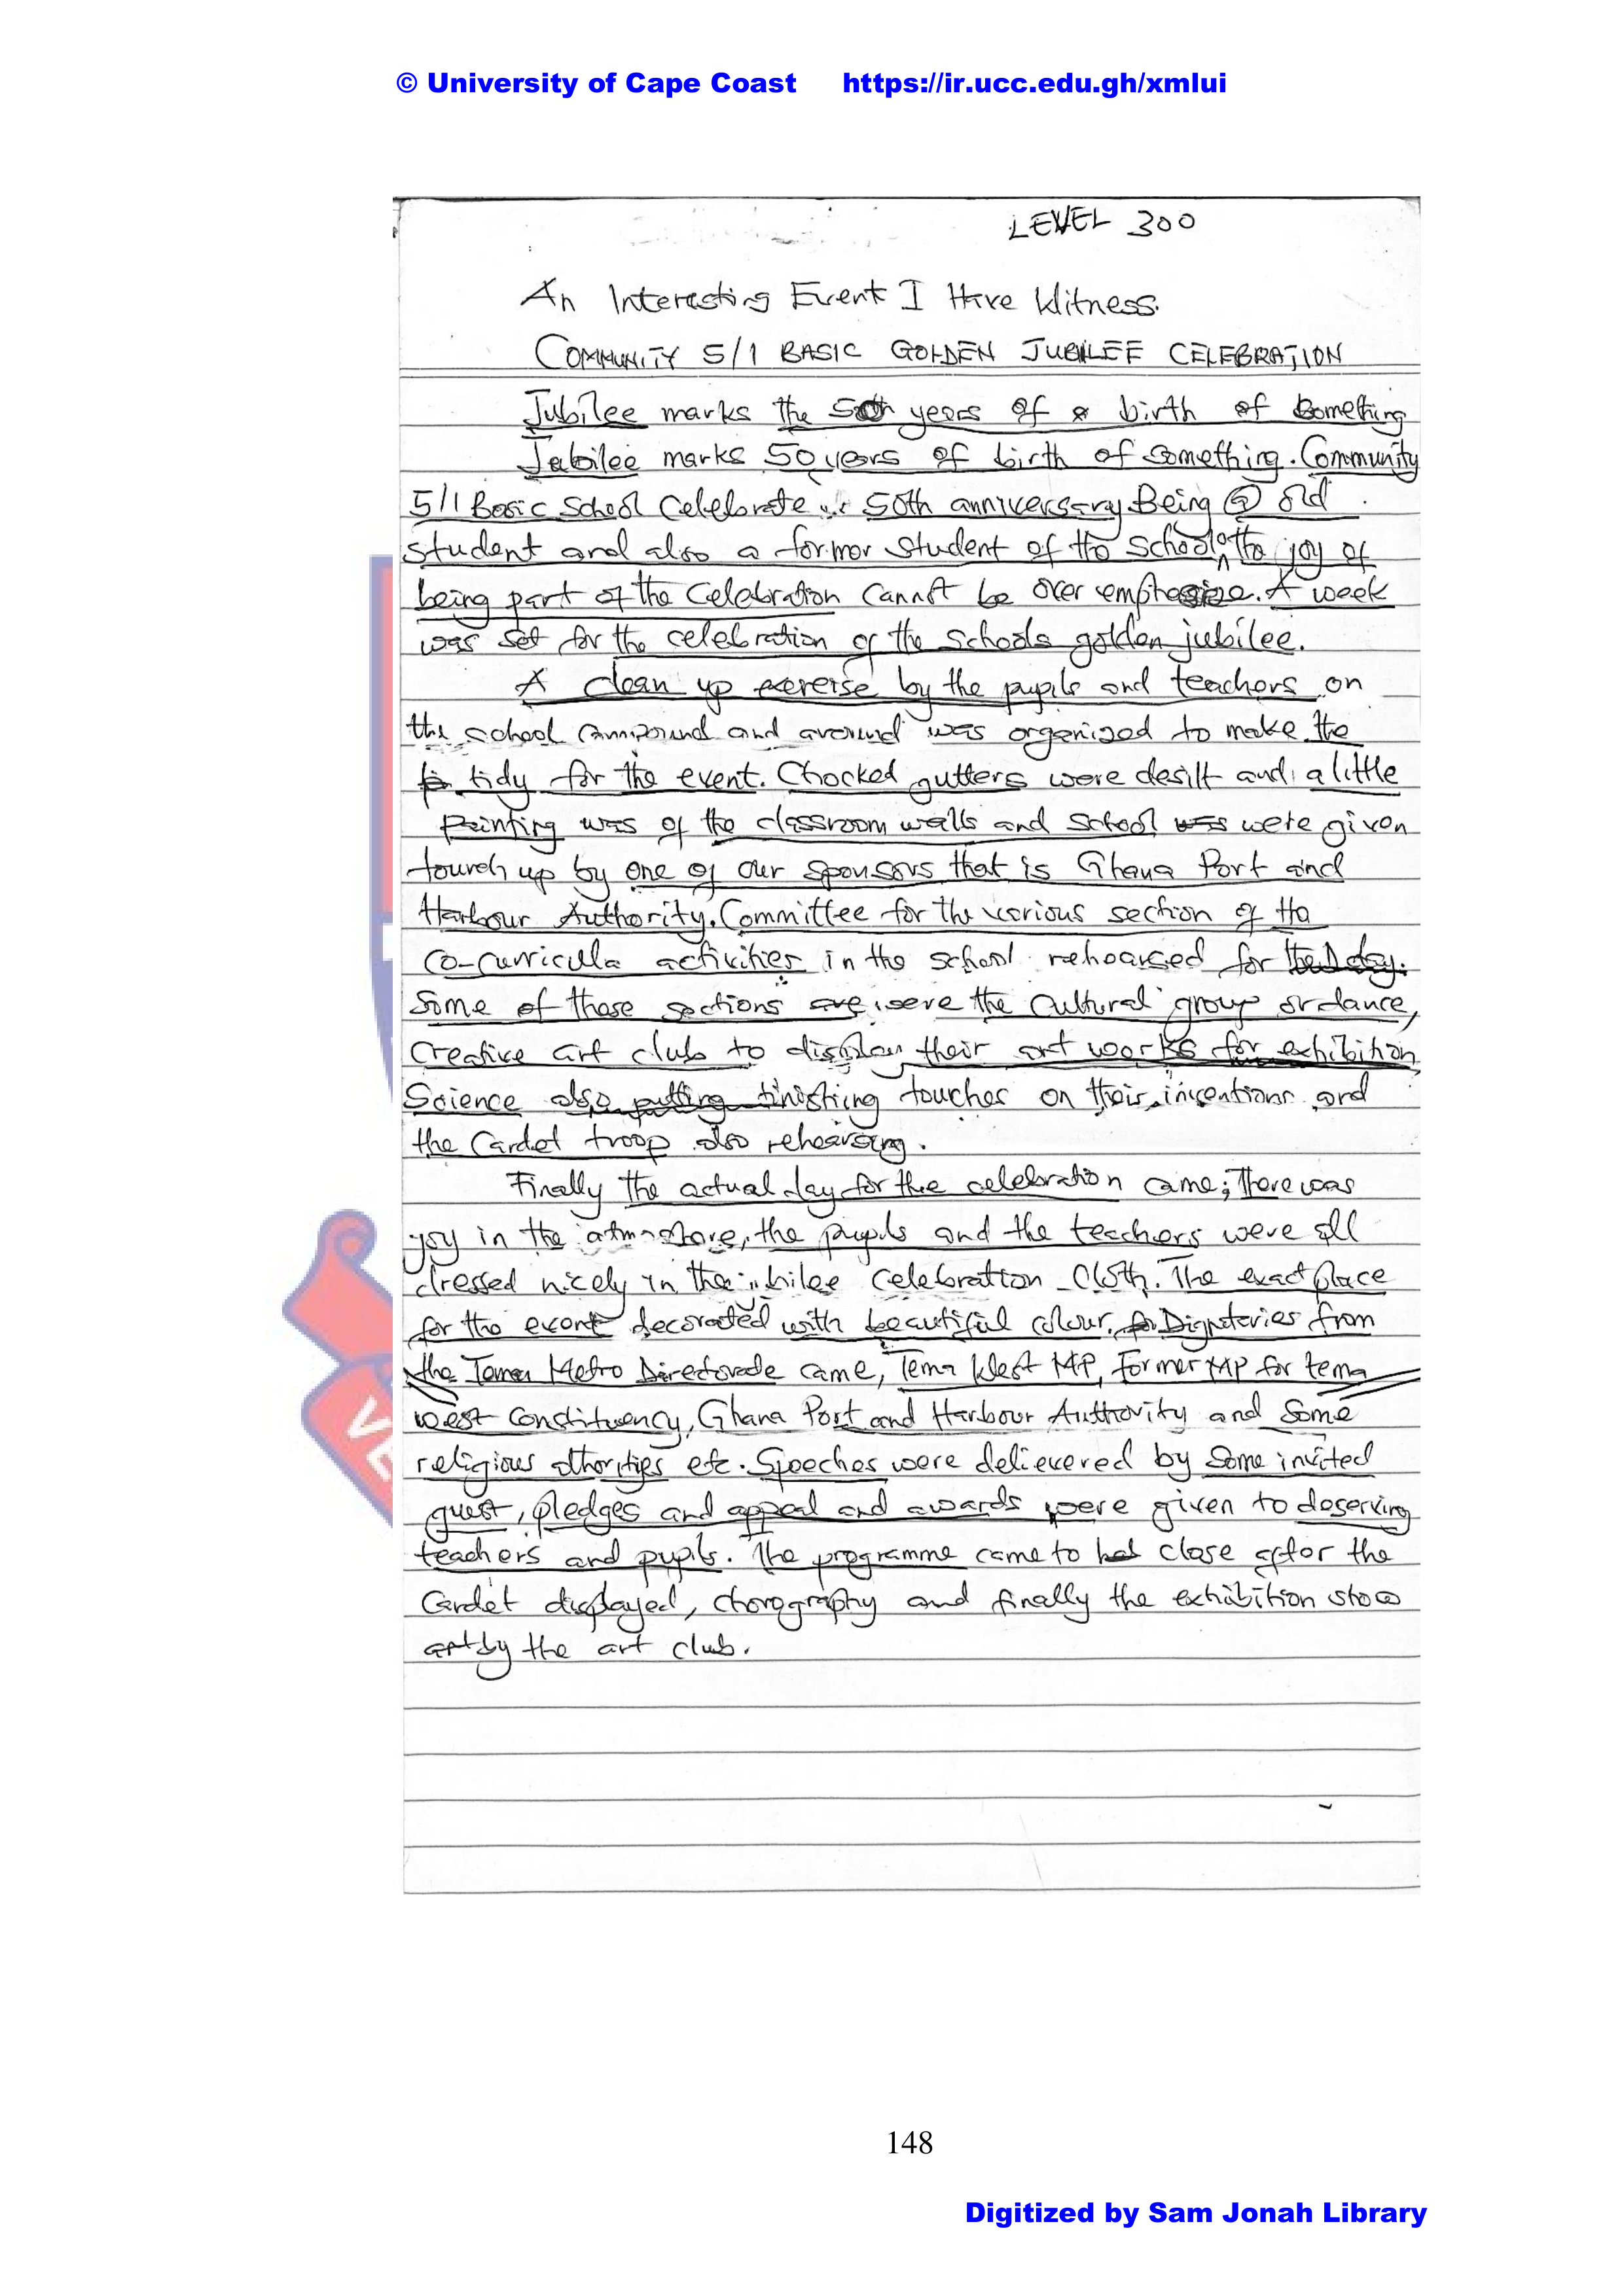 © University of Cape Coast https://ir.ucc.edu.gh/xmlui
LEVEL 300
An Interesting Event I Have Witness.
COMMUNITY 5/1 BASIC GOLDEN JUBILEE CELEBRATION
Jubilee marks the 50th years of a birth of Something
Jubilee marks 50 years of birth of something. Community
5/1 Basic School Celebrate 50th anniversary Being a old
student and also a former student of the school, the joy of
being part of the Celebration cannot be over emphasize. A week
was set for the celebration of the schools golden jubilee.
A clean up exercise by the pupils and teachers on
the school compound and around was organized to make the
tidy for the event. Chocked gutters were desilt and a little
painting was of the classroom walls and school was were given
tourch up by one of our sponsors that is Ghana Port and
Harbour Authority. Committee for the various section of the
co-curricula activities in the school rehearsed for the day.
Some of those sections are were the Cultural group or dance,
Creative art club to display their art works for exhibition
Science also putting finishing touches on their inventions and
the Cardet troop also rehearsing.
Finally the actual day for the celebration came; There was
joy in the atmosphere, the pupils and the teachers were all
dressed nicely in the jubilee celebration Cloth. The exact place
for the event decorated with beautiful colour. Dignitaries from
the Tema Metro Directorate came, Tema West MP, former MP for tema
west constituency, Ghana Port and Harbour Authority and Some
religious athorities etc. Speeches were delievered by Some invited
guest, pledges and appeal and awards were given to deserving
teachers and pupils. The programme came to close after the
Cardet displayed, chorography and finally the exhibition show
art by the art club.
VE
148
Digitized by Sam Jonah Library